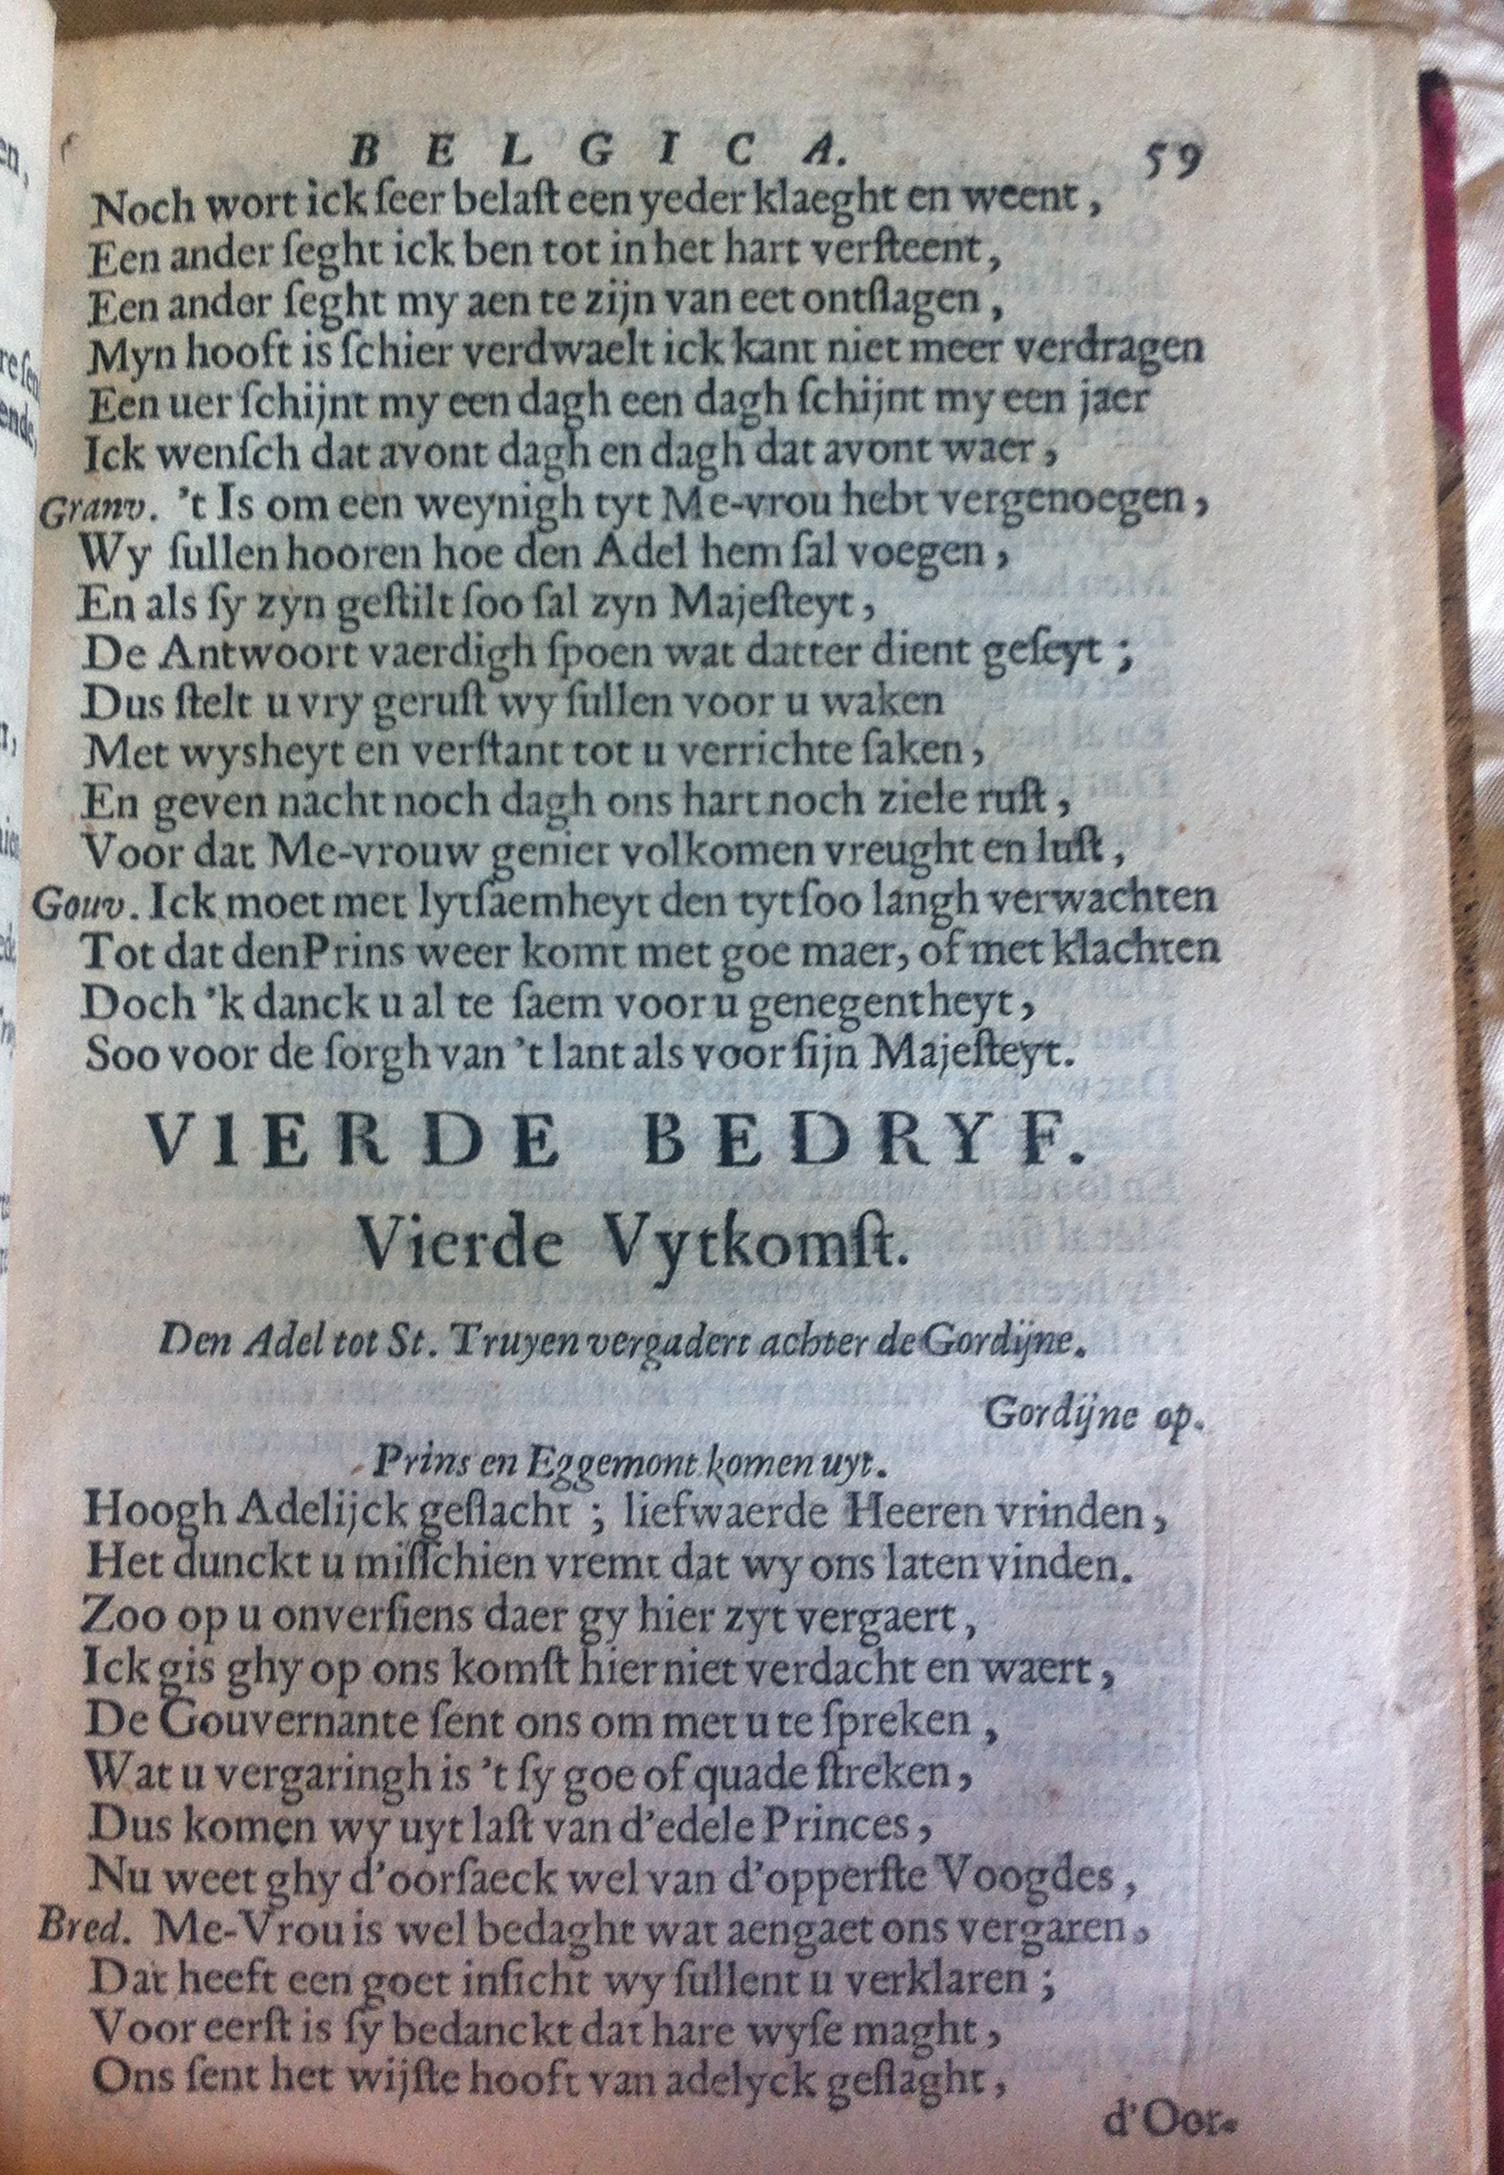 BELGICA. 59
Noch wort ick ſeer belaſt een yeder klaeght en weent,
Een ander ſeght ick ben tot in het hart verſteent,
Een ander ſeght my aen te zijn van eet ontſlagen,
Myn hooft is ſchier verdwaelt ick kant niet meer verdragen
Een uer ſchijnt my een dagh een dagh ſchijnt my een jaer
Ick wenſch dat avont dagh en dagh dat avont waer,
Granv. 't Is om een weynigh tyt Me-vrou hebt vergenoegen,
Wy ſullen hooren hoe den Adel hem ſal voegen,
En als ſy zyn geſtilt ſoo ſal zyn Majeſteyt,
De Antwoort vaerdigh ſpoen wat datter dient geſeyt;
Dus ſtelt u vry geruſt wy ſullen voor u waken
Met wysheyt en verſtant tot u verrichte ſaken,
En geven nacht noch dagh ons hart noch ziele ruſt,
Voor dat Me-vrouw geniet volkomen vreught en luſt,
Gouv. Ick moet met lytſaemheyt den tyt ſoo langh verwachten
Tot dat den Prins weer komt met goe maer, of met klachten
Doch 'k danck u al te ſaem voor u genegentheyt,
Soo voor de ſorgh van 't lant als voor ſijn Majeſteyt.
VIERDE BEDRYF.
Vierde Vytkomſt.
Den Adel tot St. Truyen vergadert achter de Gordijne.
Gordijne op.
Prins en Eggemont komen uyt.
Hoogh Adelijck geſlacht; liefwaerde Heeren vrinden,
Het dunckt u miſſchien vremt dat wy ons laten vinden.
Zoo op u onverſiens daer gy hier zyt vergaert,
Ick gis ghy op ons komſt hier niet verdacht en waert,
De Gouvernante ſent ons om met u te ſpreken,
Wat u vergaringh is 't ſy goe of quade ſtreken,
Dus komen wy uyt laſt van d'edele Princes,
Nu weet ghy d'oorſaeck wel van d'opperſte Voogdes,
Bred. Me-Vrou is wel bedaght wat aengaet ons vergaren,
Dat heeft een goet inſicht wy ſullent u verklaren;
Voor eerſt is ſy bedanckt dat hare wyſe maght,
Ons ſent het wijſte hooft van adelyck geſlaght,
d'Oor-